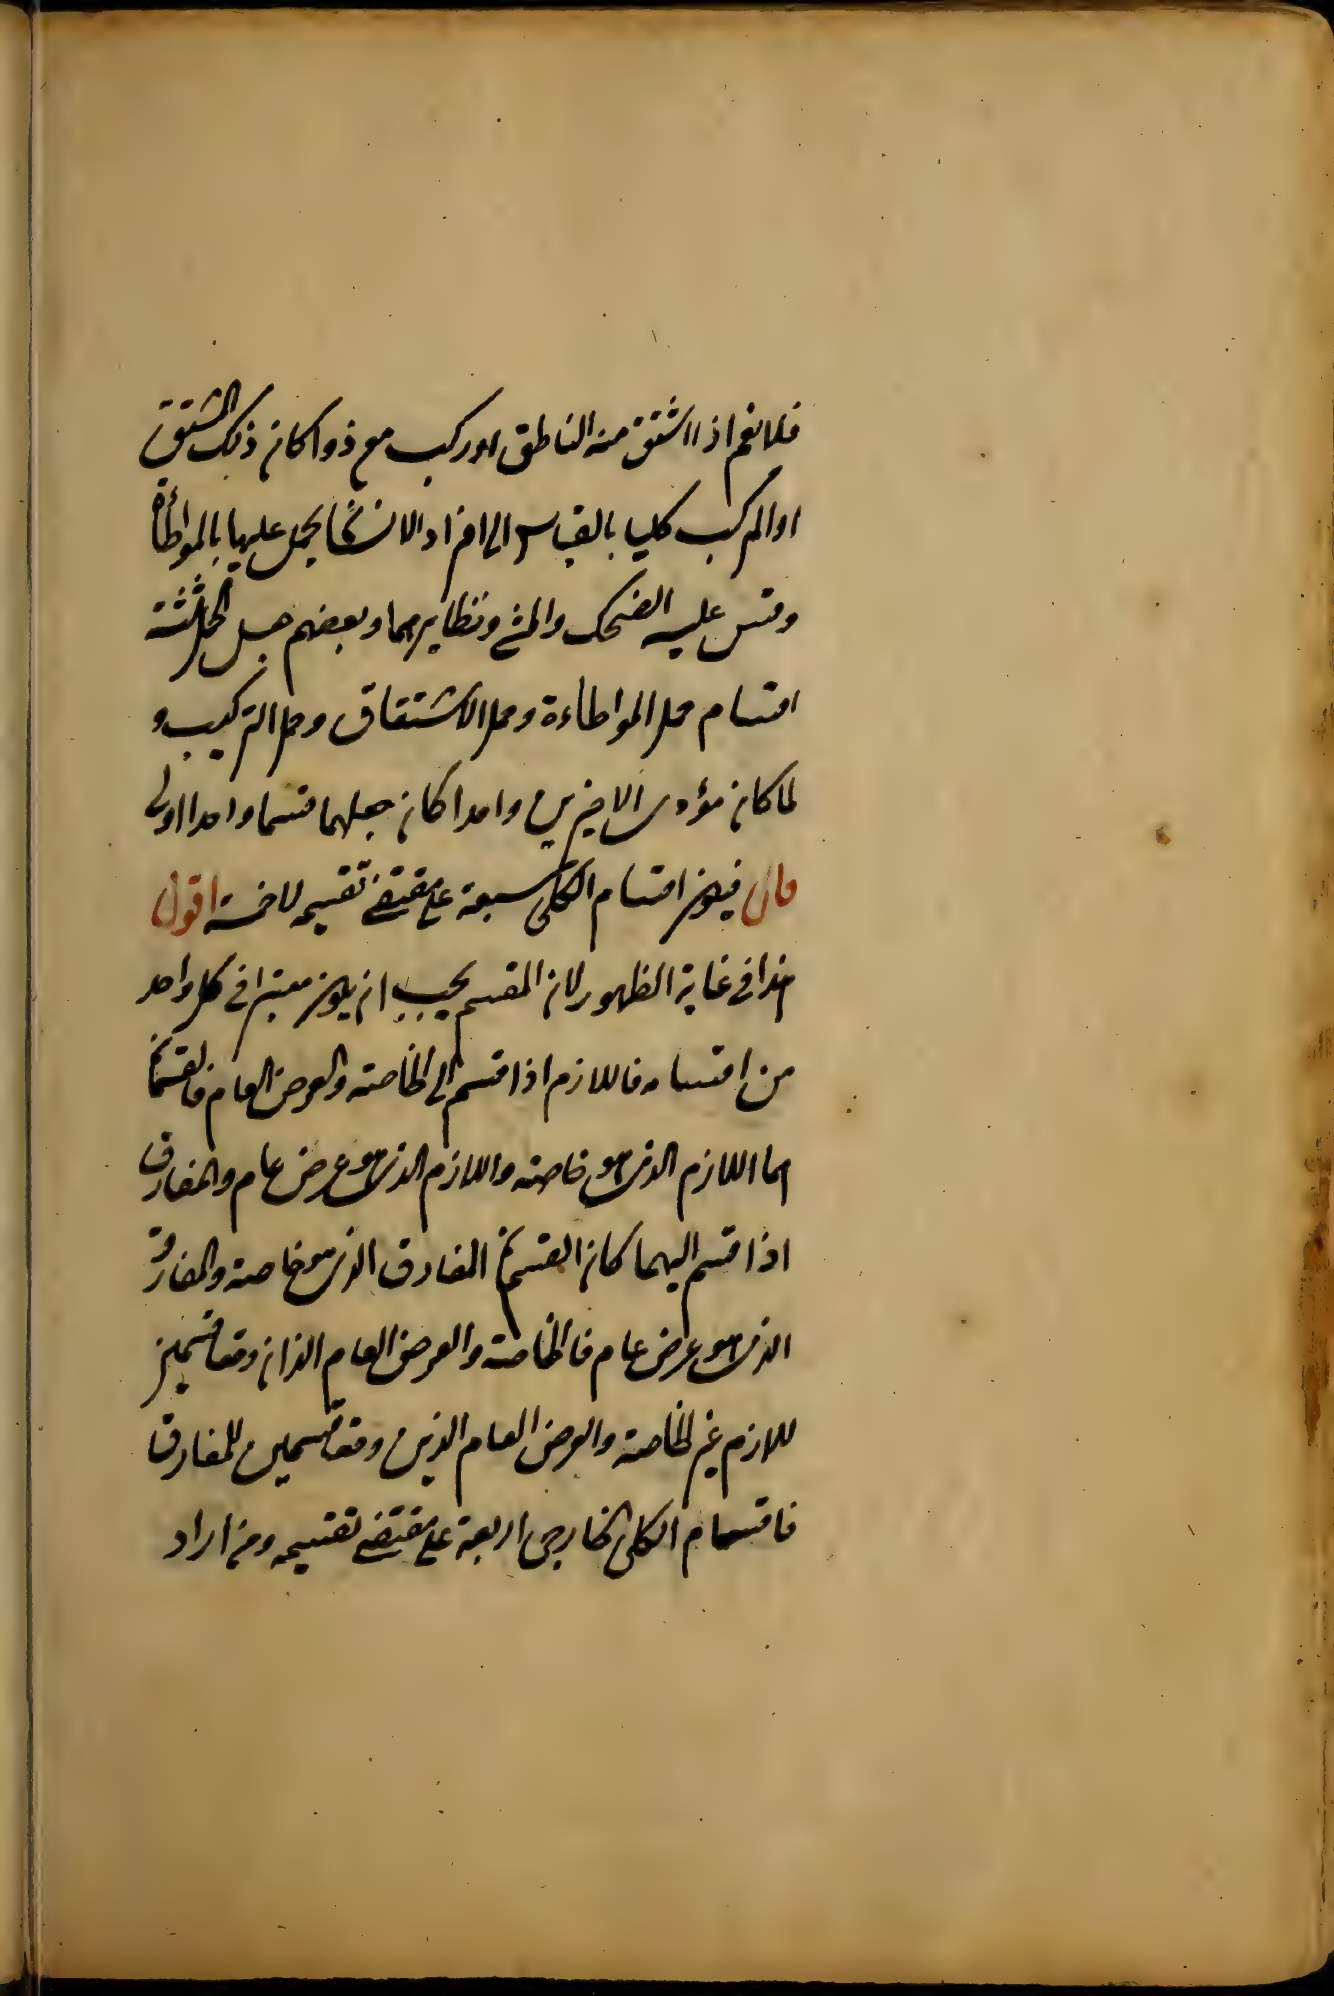 فلا نعم اذا اشتق منه الناطق او ركب مع ذو كان ذلك المشتق
او المركب كليا بالقياس الى افراد الانسان يحمل عليها بالمواطأة
وقس عليه الضحك والمشي ونظايرهما وبعضهم جعل الحمل ثلثة
اقسام حمل المواطاءة وحمل الاشتقاق وحمل التركيب و
لما كان مؤدى الاخيرين واحدا كان جعلهما قسما واحدا اولى
قال فيكون اقسام الكلى سبعة على مقتضى تقسيمه لا خمسة اقول
هذا في غاية الظهور لان المقسم يجب ان يكون معتبرا في كل واحد
من اقسامه فاللازم اذا قسم الى الخاصة والعرض العام فالقسمان
هما اللازم الذى هو خاصة واللازم الذى هو عرض عام والمفارق
اذا قسم اليهما كان القسمان المفارق الذى هو خاصة والمفارق
الذى هو عرض عام فالخاصة والعرض العام الذان وقعا قسمين
للازم غير الخاصة والعرض العام الذين وقعا قسمين للمفارق
فاقسام الكلى الخارجى اربعة على مقتضى تقسيمه ومن اراد